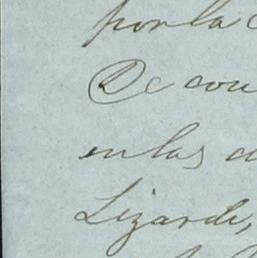 por la
De con
en las
Lizardi,